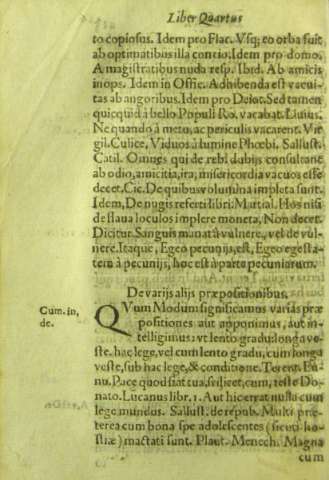 Liber Quartus
to copiosus. Idem pro Flac. Vsq; eo orba fuit
ab optimatibus illa contio. Idem pro domo.
A magistratibus nuda resp. Ibid. Ab amicis
inops. Idem in Offic. Adhibenda est vacui-
tas ab angoribus. Idem pro Deiot. Sed tamen
quicquid à bello Populi Ro. vacabat. Liuius.
Ne quando à metu, ac periculis vacarent. Vir
gil. Culice, Viduos à lumine Phœbi. Sallust.
Catil. Omnes qui de reb' dubijs consultant
ab odio, amicitia, ira, misericordia vacuos esse
decet. Cic. De quibus volumina impleta sunt.
Idem, De nugis referti libri. Martial. Hos nisi
de flaua loculos implere moneta, Non decet.
Dicitur Sanguis manat à vulnere, vel de vul-
nere. Itaque, Egeo pecunijs, est, Egeo egesta-
tem à pecunijs, hoc est à parte pecuniarum.
De varijs alijs præpositionibus.
Cum, in,
de.
QVum Modum significamus varias præ
positiones aut apponimus, aut in-
telligimus: vt lento gradu: longa ve-
ste. hac lege, vel cum lento gradu, cum longa
veste, sub hac lege, & conditione. Terent. Eu-
nu. Pace quod fiat tua, scilicet, cum, teste Do-
nato. Lucanus libr. 1. Aut hic errat nulla cum
lege mundus. Sallust. de repub. Multi præ-
terea cum bona spe adolescentes (sicuti ho-
stiæ) mactati sunt. Plaut. Menech. Magna
cum